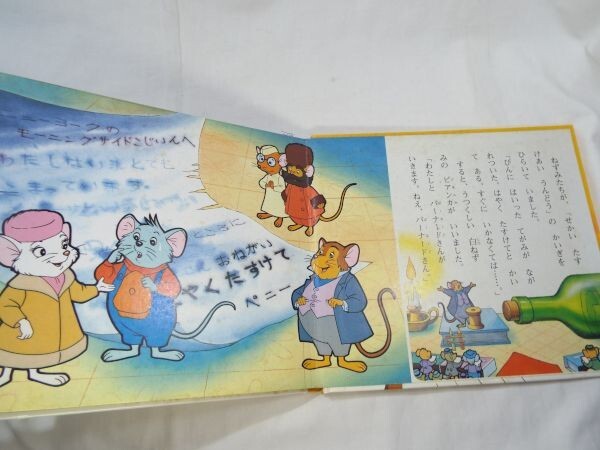 ニューヨークの
モーニングサイドこじいんへ
わたしはいまとても
こまっています。
ところに
おねがい
やくたすけて
ペニー
ねずみたちが、「せかい　たす
けあい　うんどう」の　かいぎを
ひらいて　いました。
「びんに　はいった　てがみが　なが
れついた。はやく　たすけてと　かい
て　ある。すぐに　いかなくては……。」
すると、うつくしい　白ねず
みの　ビアンカが　いいました。
「わたしと　バーナードさんが
いきます。ねえ、バーナードさん。」